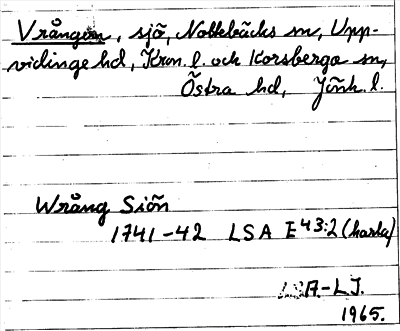 Vrången, sjö, Nottebäcks sn, Upp-
vidinge hd, Kron. l. och Korsberga sn,
Östra hd, Jönk. l.
Wrång Siön
1741-42 LSA E43:2 (karta)
-LJ.
1965.